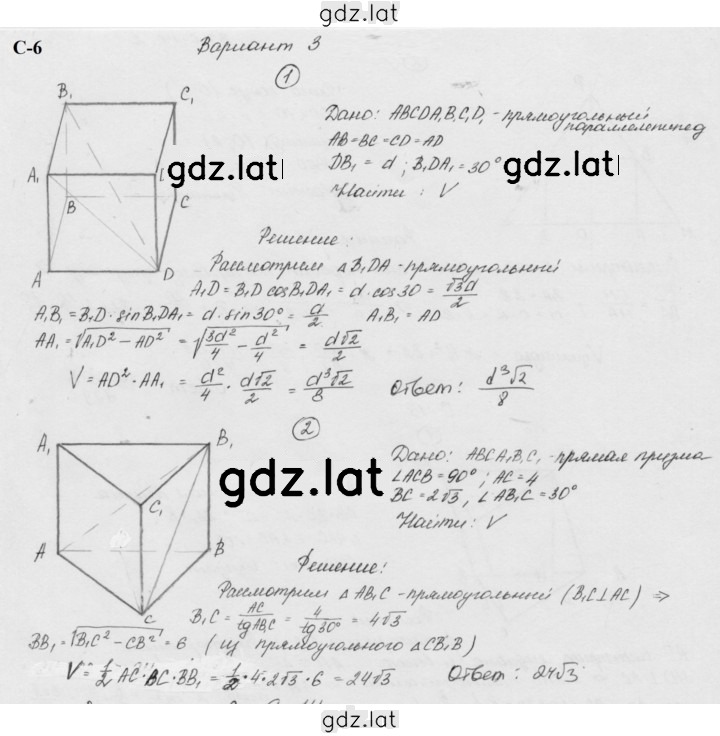 gdz.lat
С-6 Вариант 3
1
B₁ C₁
A₁
B C
A D
Дано: ABCDA₁B₁C₁D₁ - прямоугольный
параллелепипед
AB=BC=CD=AD
DB₁ = d ; B₁DA₁=30°
gdz.lat gdz.lat
Найти : V
Решение:
Рассмотрим △B₁DA - прямоугольный
A₁D=B₁D cosB₁DA₁= d·cos30 = √3d/2
A₁B₁= B₁D·sinB₁DA₁= d·sin30°= d/2 A₁B₁ = AD
AA₁=√(A₁D²-AD²) = √(3d²/4 - d²/4) = d√2/2
V=AD²·AA₁ = d²/4 · d√2/2 = d³√2/8 Ответ: d³√2/8
2
A₁ B₁
C₁
A B
C
Дано: ABCA₁B₁C₁ - прямая призма
∠ACB=90° ; AC=4
BC=2√3, ∠AB₁C=30°
gdz.lat
Найти: V
Решение:
Рассмотрим △AB₁C - прямоугольный (B₁C⊥AC) ⇒
B₁C = AC/tgAB₁C = 4/tg30° = 4√3
BB₁=√(B₁C²-CB²)=6 (из прямоугольного △CB₁B)
V=1/2 AC·BC·BB₁ = 1/2·4·2√3·6 = 24√3 Ответ: 24√3
gdz.lat